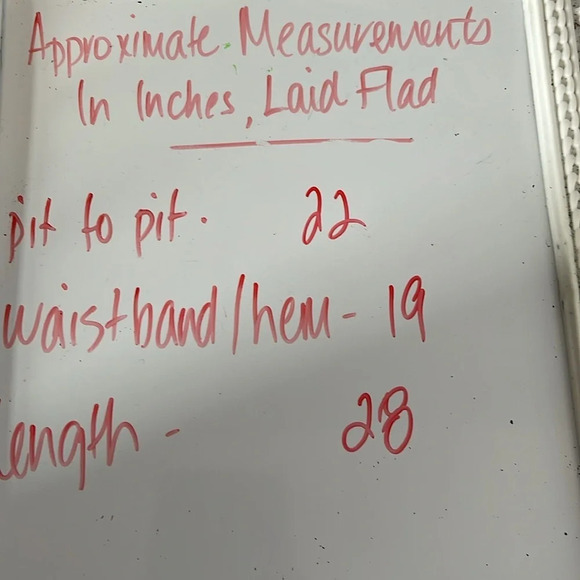 Approximate Measurements
In Inches, Laid Flad
pit to pit. 22
waistband/hem - 19
Length - 28